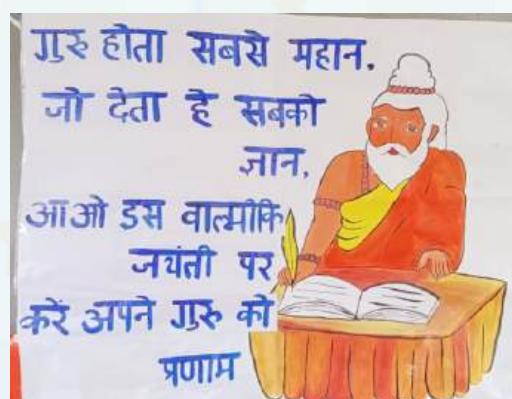 गुरु होता सबसे महान,
जो देता हे सबको
ज्ञान,
आओ इस वाल्मीकि
जयंती पर
करें अपने गुरु को
प्रणाम